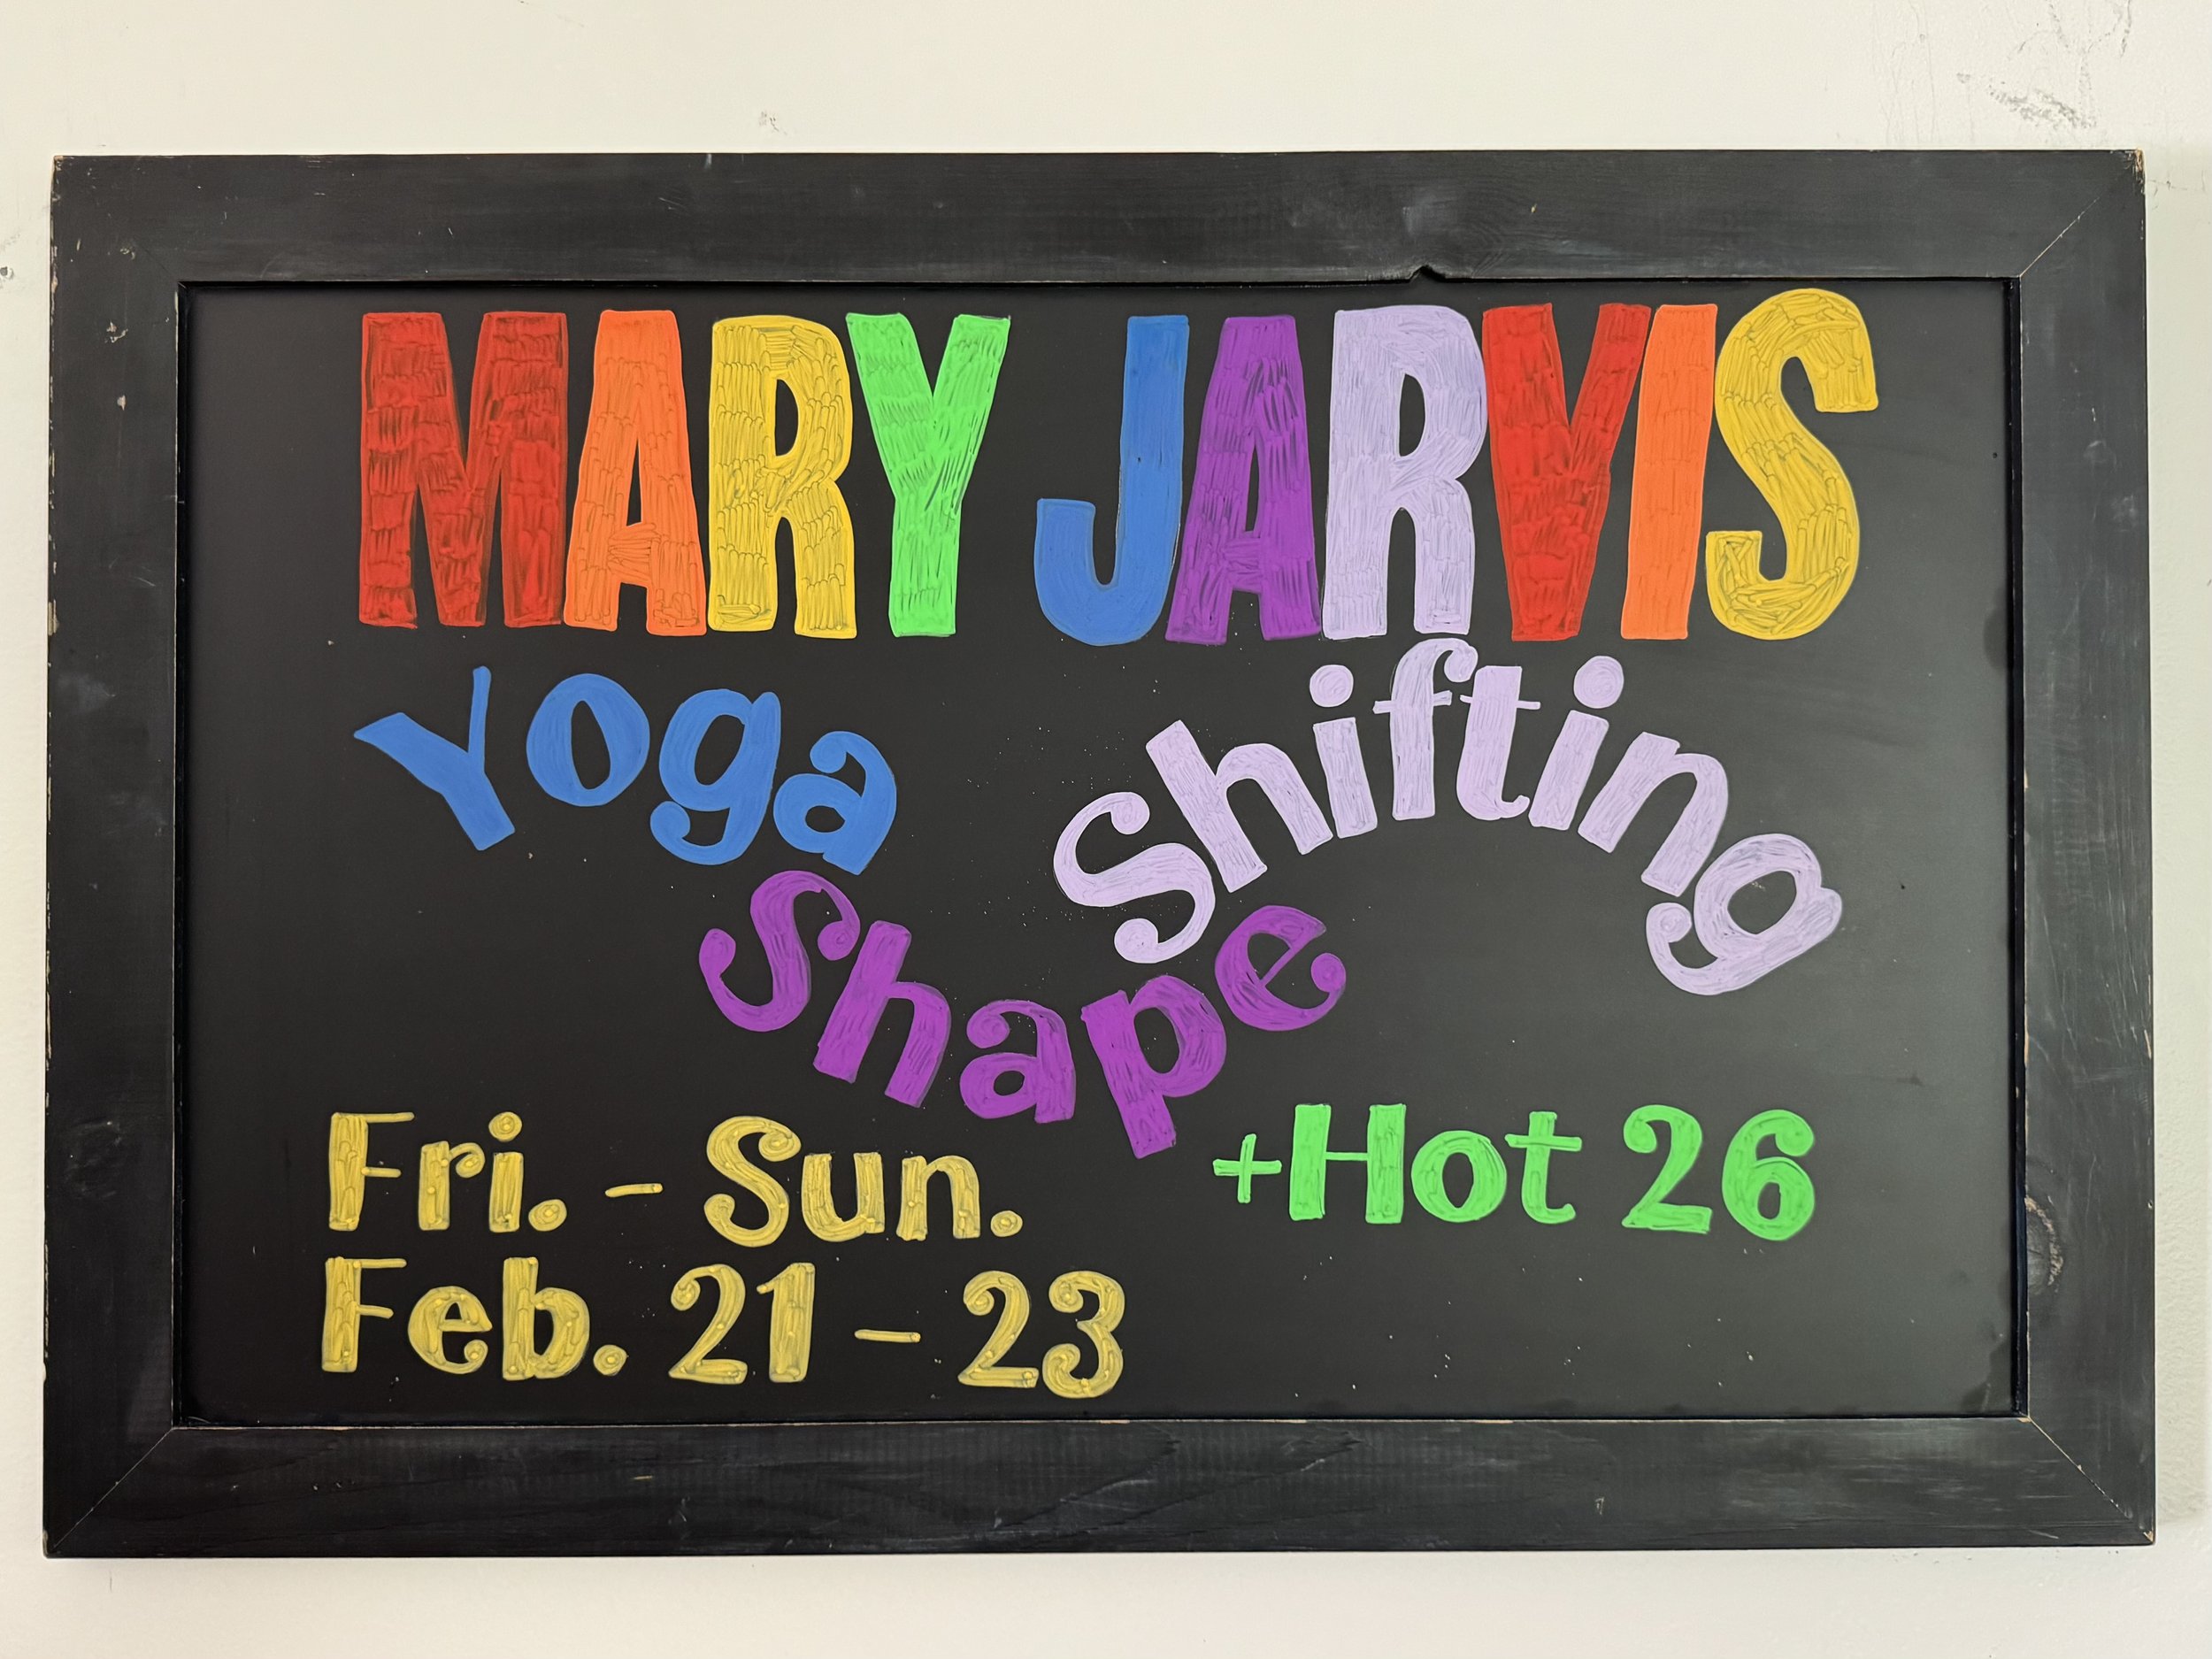 MARY JARVIS
Yoga
Shape
Shifting
+Hot 26
Fri. - Sun.
Feb. 21 - 23